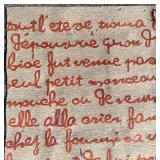 tout l'ete se trouva
depourvue quand
bise fut venue pas
eul petit morceau
mouche ou de verm
elle alla crier fam
chez la fourmi sa v